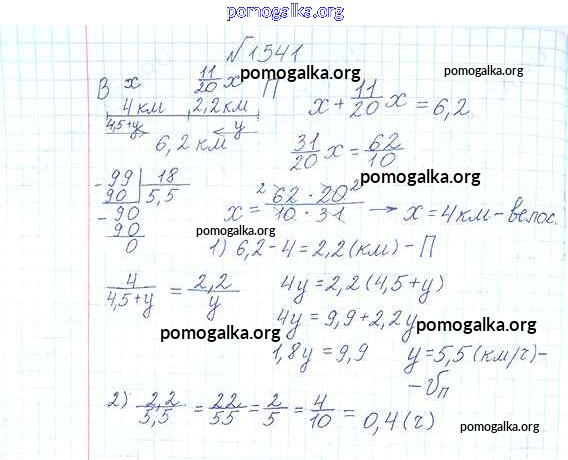 pomogalka.org
№1541
В x 11/20 x П
pomogalka.org
pomogalka.org
4 км 2,2 км
x + 11/20 x = 6,2
4,5+y y
6,2 км
31/20 x = 62/10
99 | 18
90 | 5,5
90
90
0
pomogalka.org
x = 62 · 20 / 10 · 31 → x = 4 км – велос.
2 2
pomogalka.org
1) 6,2 – 4 = 2,2 (км) – П
4 / 4,5+y = 2,2 / y
4y = 2,2 (4,5 + y)
4y = 9,9 + 2,2y
pomogalka.org
pomogalka.org
1,8y = 9,9 y = 5,5 (км/ч) –
– Vп
2) 2,2/5,5 = 22/55 = 2/5 = 4/10 = 0,4 (ч)
pomogalka.org